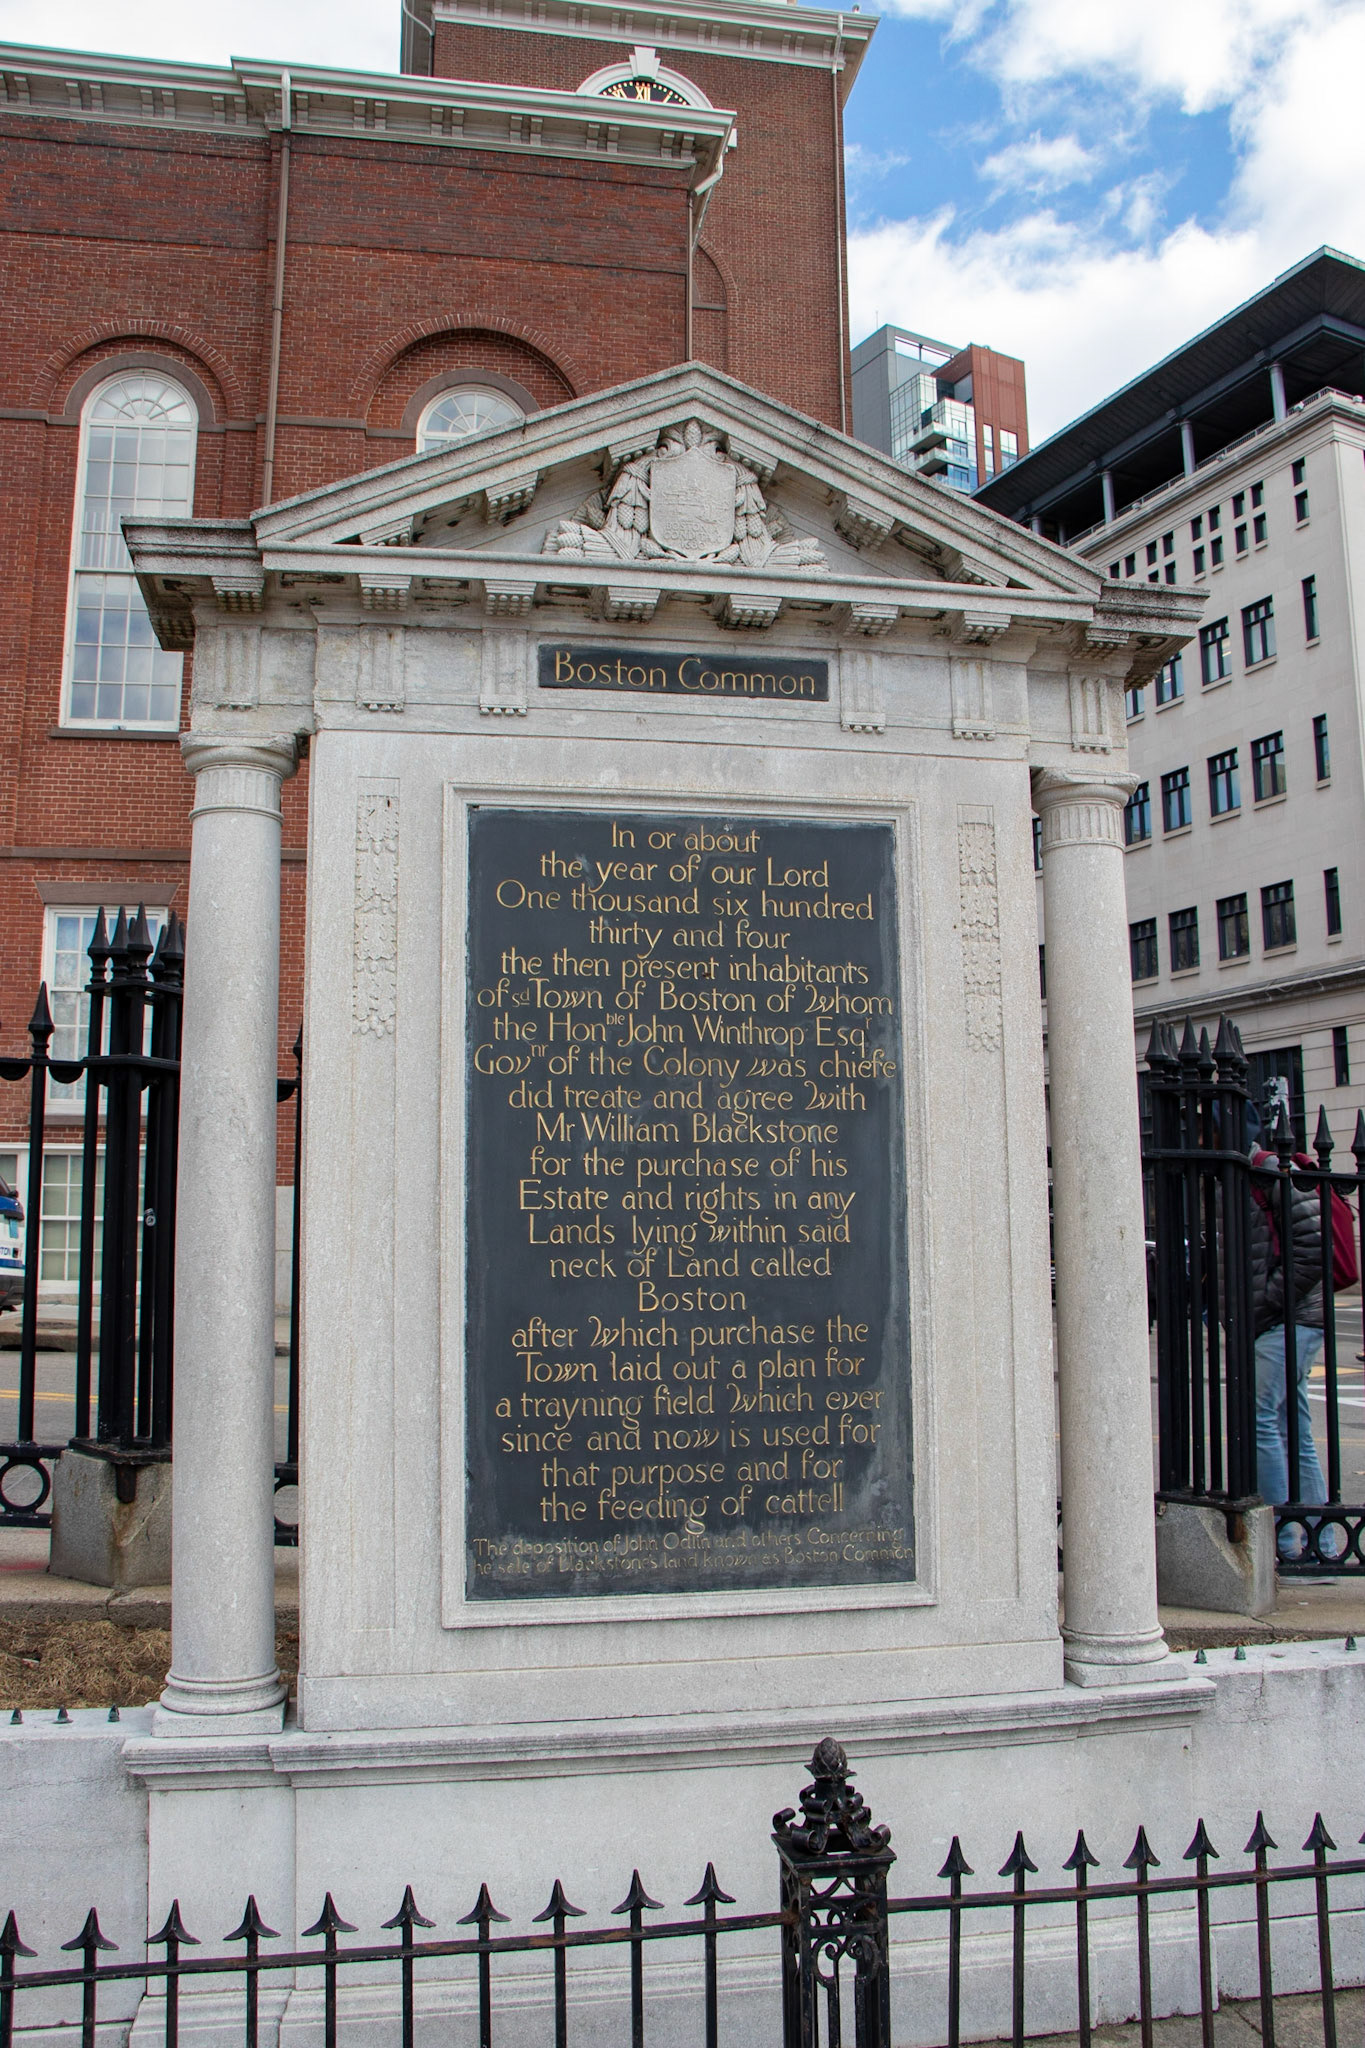 Boston Common
In or about
the year of our Lord
One thousand six hundred
thirty and four
the then present inhabitants
of sd Town of Boston of Whom
the Honble John Winthrop Esqr
Govnr of the Colony was chiefe
did treate and agree With
Mr William Blackstone
for the purchase of his
Estate and rights in any
Lands lying within said
neck of Land called
Boston
after Which purchase the
Town laid out a plan for
a trayning field Which ever
since and now is used for
that purpose and for
the feeding of cattell
The deposition of John Odlin and others Concerning
he sale of Blackstone's land known as Boston Common